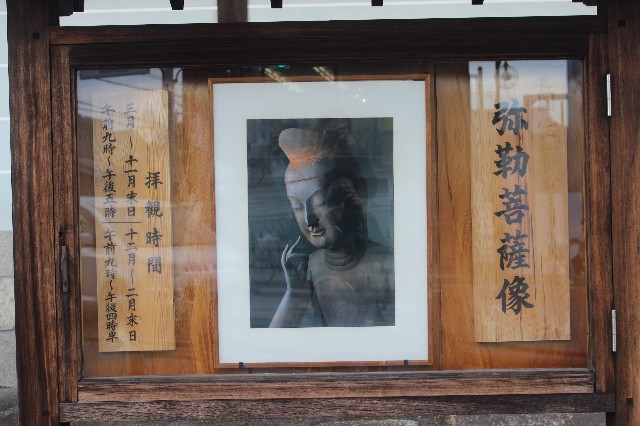 弥勒菩薩像
拝観時間
三月～十一月末日 十二月～二月末日
午前九時～午後五時 午前九時～午後四時半